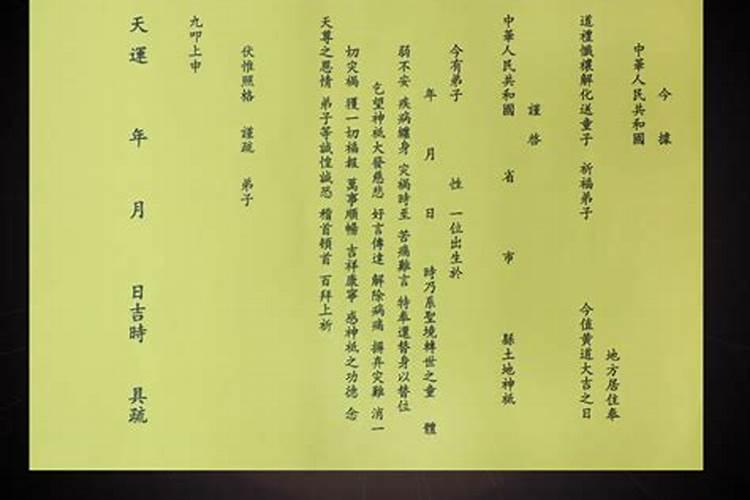 今據
中華人民共和國
地方居住奉
道禮懺禳解化送童子 祈福弟子 今值黃道大吉之日
謹啓
中華人民共和國 省 市 縣土地神祗
今有弟子 性 一位出生於
年 月 日 時乃系聖境轉世之童 體
弱不安 疾病纏身 災禍時至 苦痛難言 特奉還替身以替位
乞望神祗大發慈悲 好言傳達 解除病痛 摒弃災難 消一
切災禍 獲一切福報 萬事順暢 吉祥康寧 感神祗之功德 念
天尊之恩情 弟子等誠惶誠恐 稽首頓首 百拜上祈
伏惟照格 謹疏 弟子
九叩上申
天運 年 月 日吉時 具疏